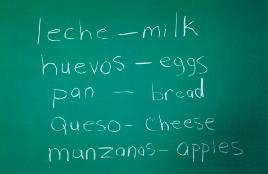 leche – milk
huevos – eggs
pan – bread
queso – cheese
manzanas – apples